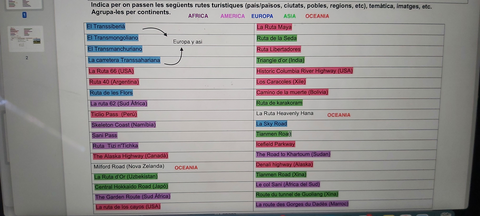 Indica per on passen les següents rutes turístiques (país/països, ciutats, pobles, regions, etc), temàtica, imatges, etc.
Agrupa-les per continents.
AFRICA AMERICA EUROPA ASIA OCEANIA
El Transsiberià
El Transmongoliano
El Transmanchuriano
La carretera Transsahariana
Europa y asi
La Ruta 66 (USA)
Ruta 40 (Argentina)
Ruta de les Flors
La ruta 62 (Sud Àfrica)
Ticlio Pass (Perú)
Skeleton Coast (Namibia)
Sani Pass
Ruta Tizi n'Tichka
The Alaska Highway (Canadà)
Milford Road (Nova Zelanda) OCEANIA
La Ruta d'Or (Uzbekistan)
Central Hokkaido Road (Japó)
The Garden Route (Sud Àfrica)
La ruta de los cayos (USA)
La Ruta Maya
Ruta de la Seda
Ruta Libertadores
Triangle d'or (India)
Historic Columbia River Highway (USA)
Los Caracoles (Xile)
Camino de la muerte (Bolivia)
Ruta de karakoram
La Ruta Heavenly Hana OCEANIA
La Sky Road
Tianmen Road
Icefield Parkway
The Road to Khartoum (Sudan)
Denali highway (Alaska)
Tianmen Road (Xina)
Le col Sani (Àfrica del Sud)
Route du tunnel de Guoliang (Xina)
La route des Gorges du Dadès (Maroc)